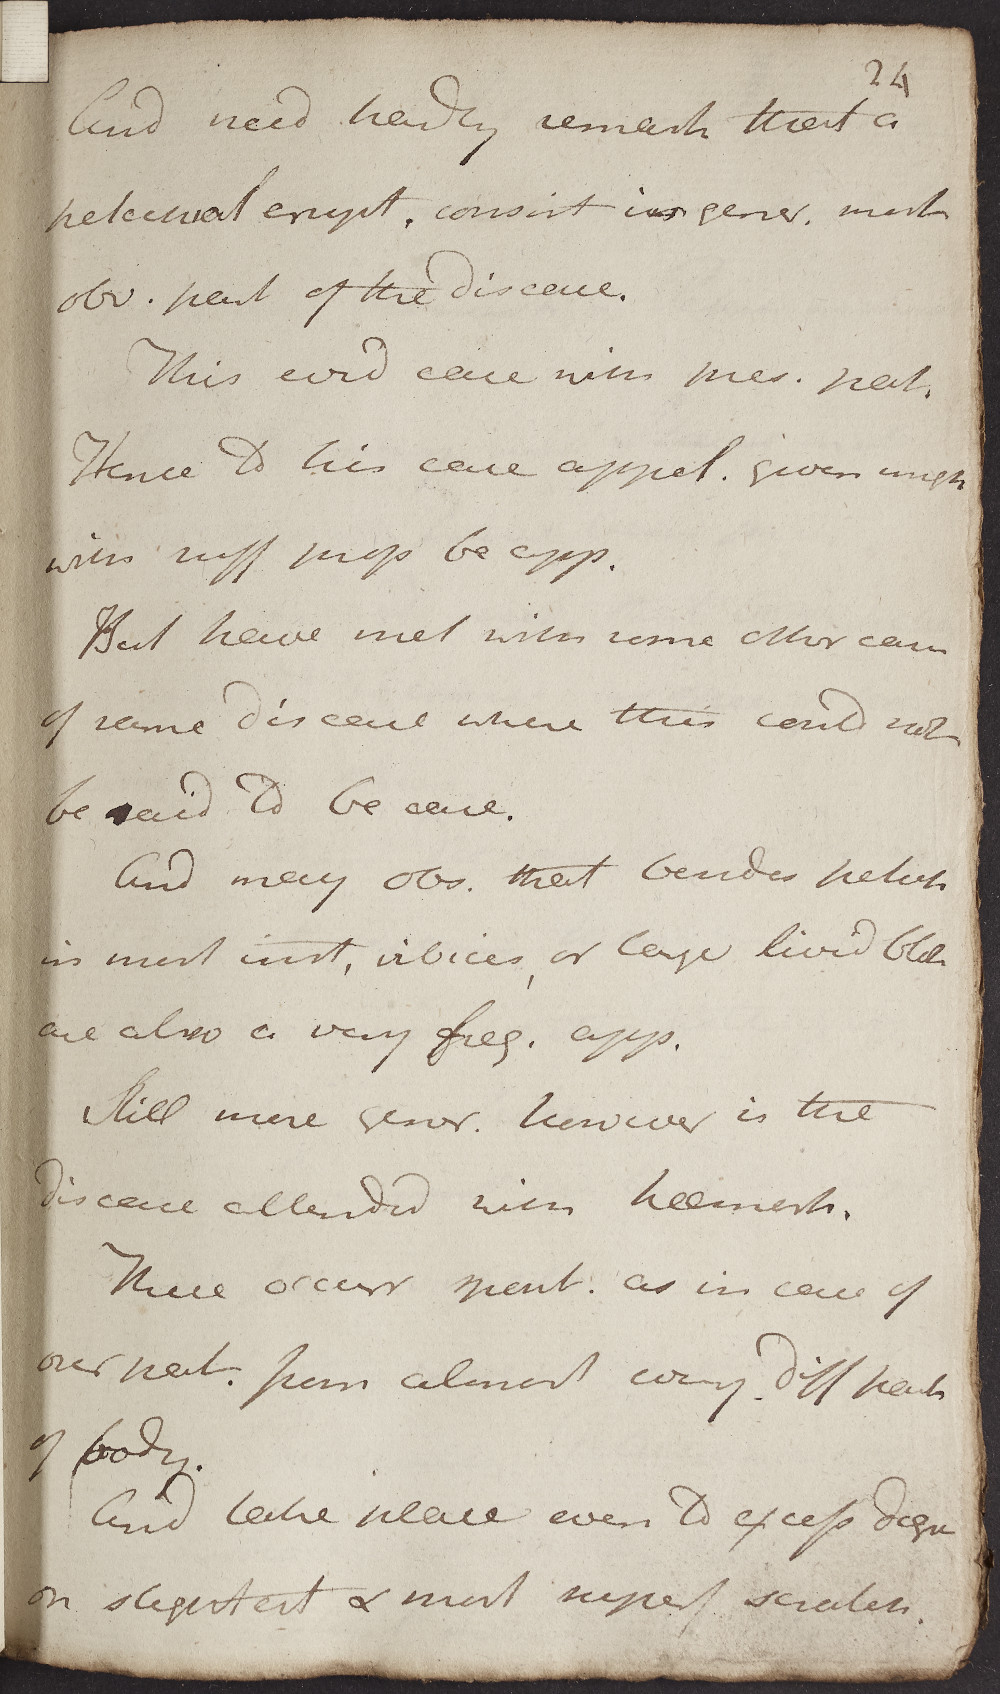 24
And need hardly remark that a
petechial erupt. consist in gener. most
obv. part of the disease.
This evid case with pres. pat.
Hence to his case appel. given migh
with suff prop be app.
But have met with some other cases
of same disease where this could not
be said to be case.
And may obs. that besides petech
in most inst, vibices, or large livid blot
are also a very freq. app.
Still more gener. however is the
disease attended with hæmorh.
These occurr spont. as in case of
our pat. from almost every diff part
of body.
And take place even to excess degre
on slightest & most superf scratch.